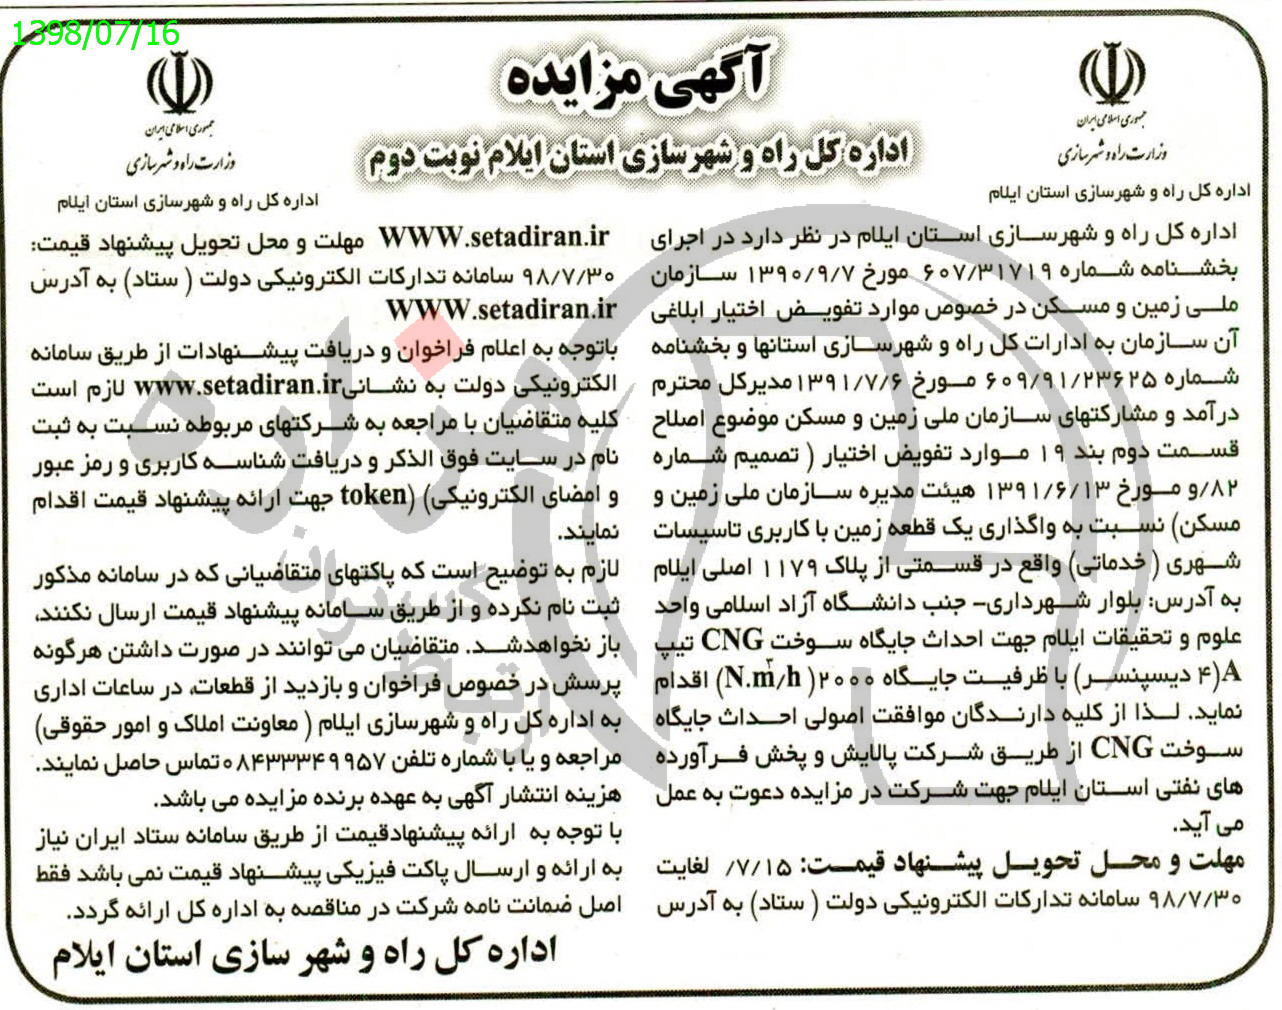 1398/07/16
آگهی مزایده
اداره کل راه و شهرسازی استان ایلام نوبت دوم
جمهوری اسلامی ایران
وزارت راه و شهرسازی
اداره کل راه و شهرسازی استان ایلام
جمهوری اسلامی ایران
وزارت راه و شهرسازی
اداره کل راه و شهرسازی استان ایلام
اداره کل راه و شهرسازی استان ایلام در نظر دارد در اجرای
بخشنامه شماره ۶۰۷/۳۱۷۱۹ مورخ ۱۳۹۰/۹/۷ سازمان
ملی زمین و مسکن در خصوص موارد تفویض اختیار ابلاغی
آن سازمان به ادارات کل راه و شهرسازی استانها و بخشنامه
شماره ۶۰۹/۹۱/۲۳۶۲۵ مورخ ۱۳۹۱/۷/۶ مدیرکل محترم
درآمد و مشارکتهای سازمان ملی زمین و مسکن موضوع اصلاح
قسمت دوم بند ۱۹ موارد تفویض اختیار ( تصمیم شماره
۸۲/و مورخ ۱۳۹۱/۶/۱۳ هیئت مدیره سازمان ملی زمین و
مسکن) نسبت به واگذاری یک قطعه زمین با کاربری تاسیسات
شهری (خدماتی) واقع در قسمتی از پلاک ۱۱۷۹ اصلی ایلام
به آدرس: بلوار شهرداری- جنب دانشگاه آزاد اسلامی واحد
علوم و تحقیقات ایلام جهت احداث جایگاه سوخت CNG تیپ
A(۴ دیسپنسر) با ظرفیت جایگاه ۲۰۰۰( N.m³/h) اقدام
نماید. لذا از کلیه دارندگان موافقت اصولی احداث جایگاه
سوخت CNG از طریق شرکت پالایش و پخش فرآورده
های نفتی استان ایلام جهت شرکت در مزایده دعوت به عمل
می آید.
مهلت و محل تحویل پیشنهاد قیمت: ۷/۱۵/ لغایت
۹۸/۷/۳۰ سامانه تدارکات الکترونیکی دولت ( ستاد) به آدرس
WWW.setadiran.ir مهلت و محل تحویل پیشنهاد قیمت:
۹۸/۷/۳۰ سامانه تدارکات الکترونیکی دولت ( ستاد) به آدرس
WWW.setadiran.ir
باتوجه به اعلام فراخوان و دریافت پیشنهادات از طریق سامانه
الکترونیکی دولت به نشانی www.setadiran.ir لازم است
کلیه متقاضیان با مراجعه به شرکتهای مربوطه نسبت به ثبت
نام در سایت فوق الذکر و دریافت شناسه کاربری و رمز عبور
و امضای الکترونیکی) (token جهت ارائه پیشنهاد قیمت اقدام
نمایند.
لازم به توضیح است که پاکتهای متقاضیانی که در سامانه مذکور
ثبت نام نکرده و از طریق سامانه پیشنهاد قیمت ارسال نکنند،
باز نخواهدشد. متقاضیان می توانند در صورت داشتن هرگونه
پرسش در خصوص فراخوان و بازدید از قطعات، در ساعات اداری
به اداره کل راه و شهرسازی ایلام ( معاونت املاک و امور حقوقی)
مراجعه و یا با شماره تلفن ۰۸۴۳۳۳۴۹۹۵۷ تماس حاصل نمایند.
هزینه انتشار آگهی به عهده برنده مزایده می باشد.
با توجه به ارائه پیشنهادقیمت از طریق سامانه ستاد ایران نیاز
به ارائه و ارسال پاکت فیزیکی پیشنهاد قیمت نمی باشد فقط
اصل ضمانت نامه شرکت در مناقصه به اداره کل ارائه گردد.
اداره کل راه و شهر سازی استان ایلام